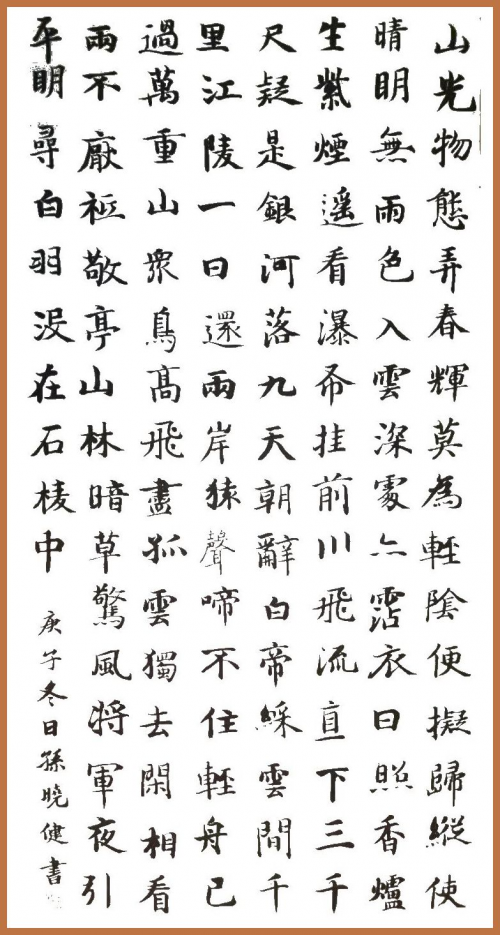 山光物態弄春輝莫為輕陰便擬歸縱使
晴明無雨色入雲深處亦霑衣日照香爐
生紫煙遙看瀑布挂前川飛流直下三千
尺疑是銀河落九天朝辭白帝綵雲間千
里江陵一日還兩岸猿聲啼不住輕舟已
過萬重山衆鳥高飛盡孤雲獨去閑相看
兩不厭祗敬亭山林暗草驚風将軍夜引
平明尋白羽没在石棱中
庚子冬日孫晓健書